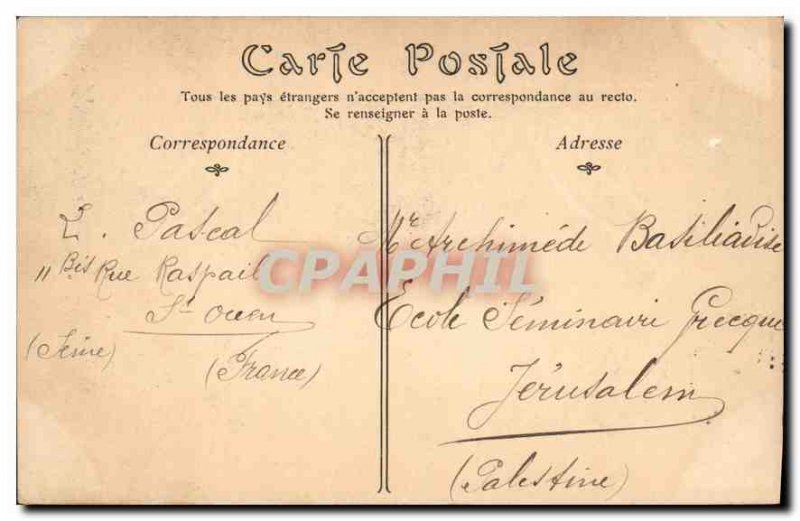 Carte Postale
Tous les pays étrangers n'acceptent pas la correspondance au recto.
Se renseigner à la poste.
Correspondance
Adresse
L. Pascal
11 Bis Rue Raspail
St Ouen
(Seine)
(France)
Mr Archimède Basiliadise
Ecole Séminaire Grecque
Jérusalem
(Palestine)
CPAPHIL